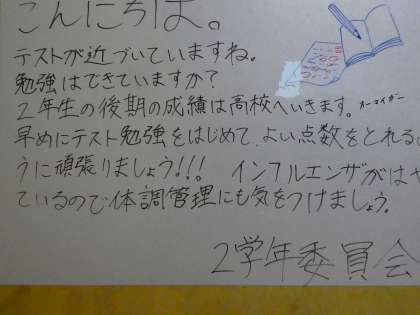 こんにちは。
テストが近づいていますね。
勉強はできていますか？
2年生の後期の成績は高校へいきます。オーマイガー
早めにテスト勉強をはじめて、よい点数をとれるよ
うに頑張りましょう!!! インフルエンザがはや
ているので体調管理にも気をつけましょう。
2学年委員会